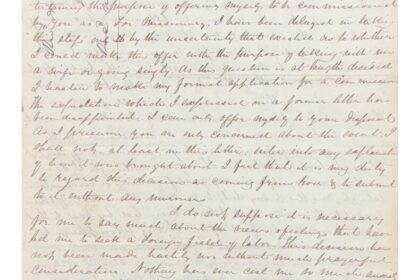 the purpose of offering myself to be commissioned
by you as a For. Missionary. I have been delayed in taking
this step only by the uncertainty that existed as to whether
I could make the offer with the purpose of taking with me
a wife or going singly. As this question is at length decided
I hasten to make my formal application for a commission
The expectation which I expressed in a former letter has
been disappointed. I can only offer myself to your disposal
As I presume you are only concerned about the event I
shall not, at least in this letter, enter into any explanation
of how it was brought about. I feel that it is my duty
to regard this decision as coming from God & to submit
to it without any murmur.
I do not suppose it is necessary
for me to say much about the views & feelings that have
led me to seek a Foreign field of labor. This decision has
not been made hastily nor without much prayerful
consideration. Nothing has ever cost me so much